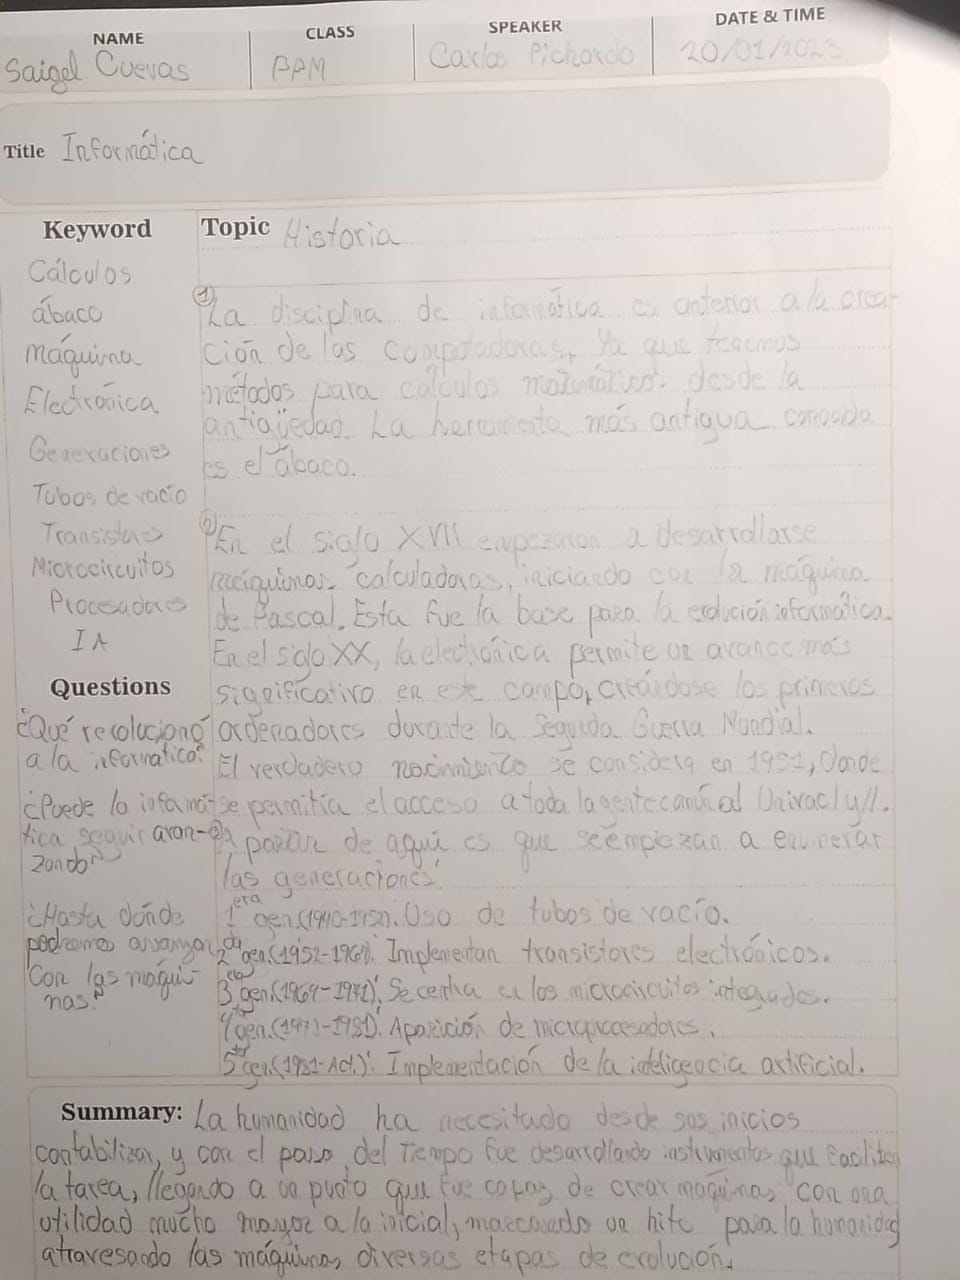 NAME CLASS SPEAKER DATE & TIME
Saigel Cuevas BPM Carlos Pichardo 20/01/2023
Title Informática
Keyword
Cálculos
ábaco
máquina
Electrónica
Generaciones
Tubos de vacío
Transistores
Microcircuitos
Procesadores
IA
Questions
¿Qué revolucionó
a la informática?
¿Puede la informá-
tica seguir avan-
zando?
¿Hasta dónde
podremos avanzar
Con las máqui-
nas?
Topic Historia
① La disciplina de informática es anterior a la crea-
ción de las computadoras, Ya que tenemos
métodos para cálculos matemáticos desde la
antigüedad. La herramienta más antigua conocida
es el ábaco.
② En el siglo XVII empezaron a desarrollarse
máquinas calculadoras, iniciando con la máquina
de Pascal. Esta fue la base para la evolución informática.
En el siglo XX, la electrónica permite un avance más
significativo en este campo, creándose los primeros
ordenadores durante la Segunda Guerra Mundial.
El verdadero nacimiento se considera en 1951, donde
se permitía el acceso a toda la gente común al Univac
③ A partir de aquí es que se empiezan a enumerar
las generaciones:
1era gen.(1940-1952): Uso de tubos de vacío.
2da gen(1952-1964): Implementan transistores electrónicos.
3era gen(1964-1971): Se centra en los microcircuitos integrados.
4ta gen.(1971-1981): Aparición de microprocesadores.
5ta gen(1981-Act.): Implementación de la inteligencia artificial.
Summary: La humanidad ha necesitado desde sus inicios
contabilizar, y con el paso del tiempo fue desarrollando instrumentos que facilite
la tarea, llegando a un punto que fue capaz de crear máquinas con una
utilidad mucho mayor a la inicial, marcando un hito para la humanidad
atravesando las máquinas diversas etapas de evolución.